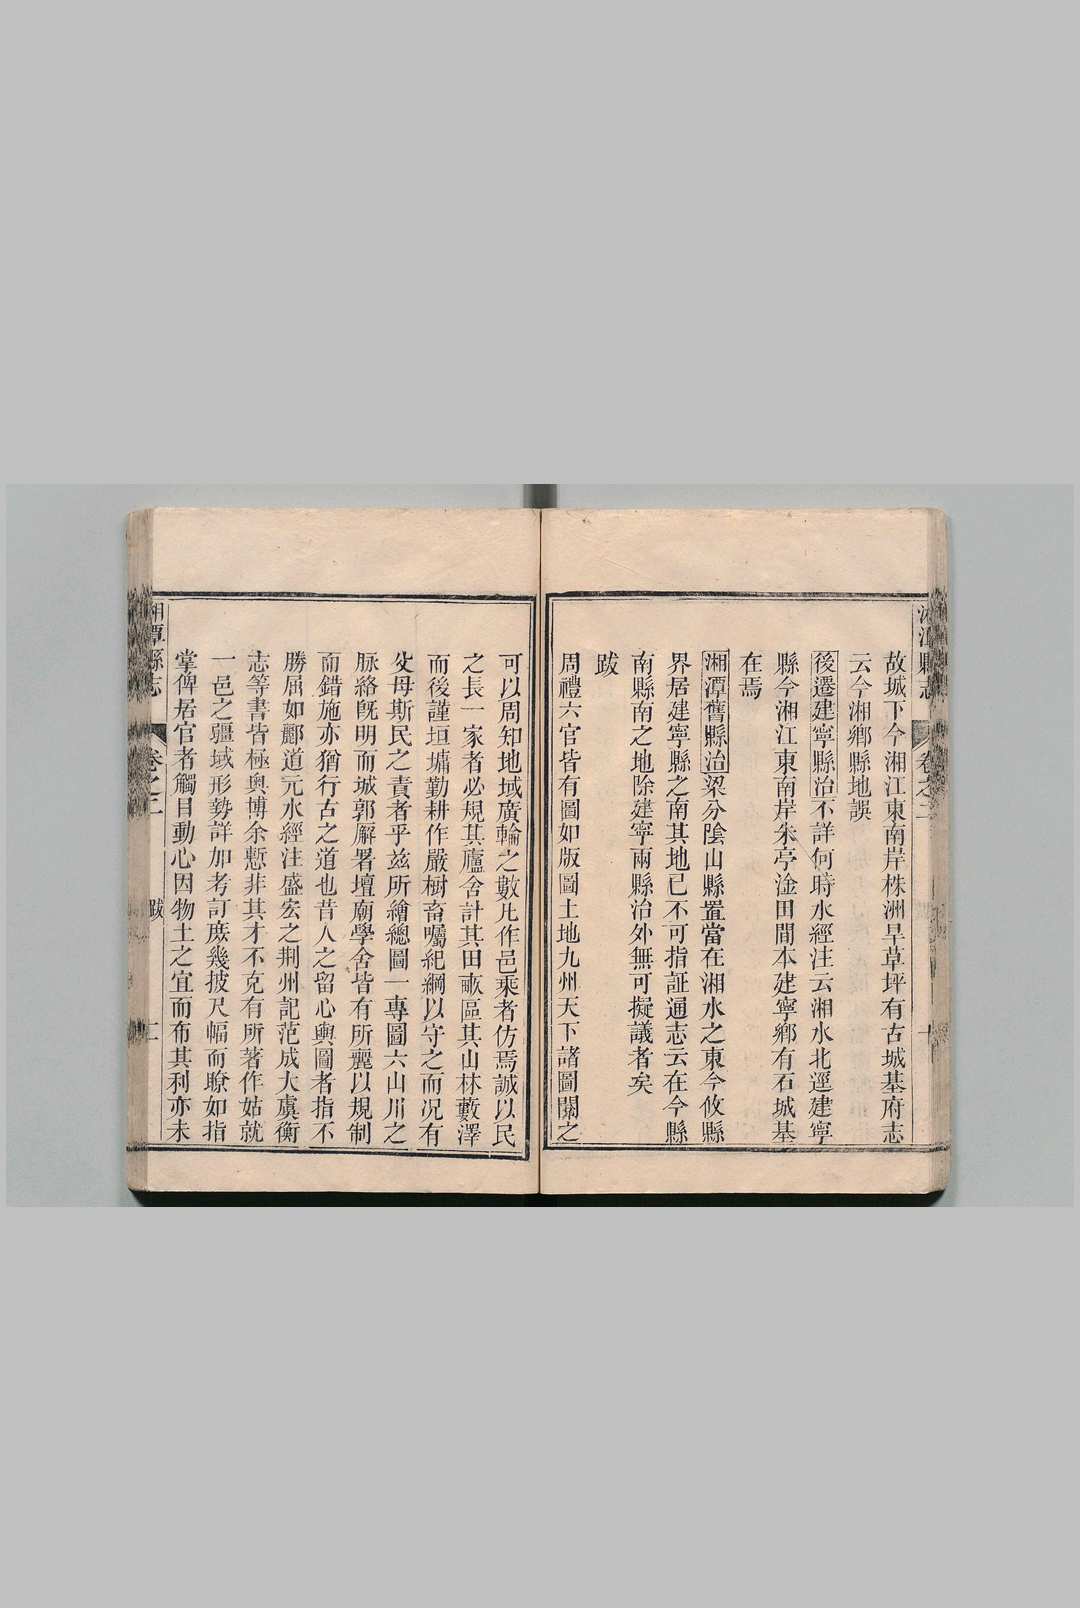 湘潭縣志
卷之二
十
故城下今湘江東南岸株洲旱草坪有古城基府志
云今湘鄉縣地誤
後遷建寧縣治不詳何時水經注云湘水北逕建寧
縣今湘江東南岸朱亭淦田間本建寧鄉有石城基
在焉
湘潭舊縣治梁分陰山縣置當在湘水之東今攸縣
界居建寧縣之南其地已不可指証通志云在今縣
南縣南之地除建寧兩縣治外無可擬議者矣
跋
周禮六官皆有圖如版圖土地九州天下諸圖閱之
可以周知地域廣輪之數凡作邑乘者仿焉誠以民
之長一家者必規其廬舍計其田畝區其山林藪澤
而後謹垣墉勤耕作嚴樹畜囑紀綱以守之而况有
父母斯民之責者乎玆所繪總圖一專圖六山川之
脉絡旣明而城郭廨署壇廟學舍皆有所麗以規制
而錯施亦猶行古之道也昔人之留心輿圖者指不
勝屈如酈道元水經注盛宏之荆州記范成大虞衡
志等書皆極奥博余慙非其才不克有所著作姑就
一邑之疆域形勢詳加考訂庶幾披尺幅而瞭如指
掌俾居官者觸目動心因物土之宜而布其利亦未
湘潭縣志
卷之二
跋
二